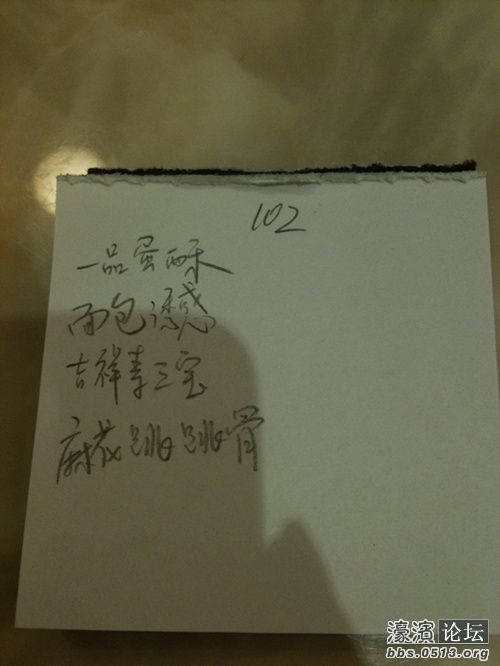 102
一品蛋酥
面包诱惑
吉祥素三宝
麻花跳跳骨
濠濱论坛
bbs.0513.org